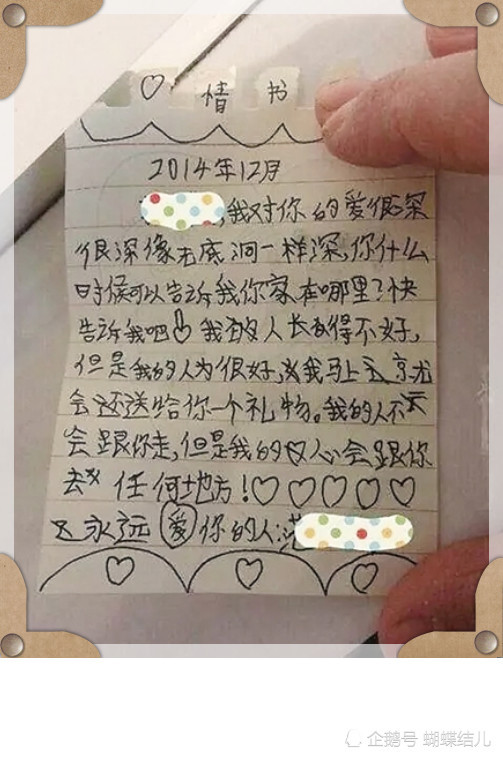 ♡ 情书
2014年12月
,我对你的爱很深
很深像无底洞一样深,你什么
时候可以告诉我你家在哪里?快
告诉我吧 我的人长得不好,
但是我的人为很好,我马上
会还送给你一个礼物。我的人不
会跟你走,但是我的人心会跟你
去 任何地方!♡♡♡♡♡
永远爱你的人:范
♡ ♡ ♡
企鹅号 蝴蝶结儿